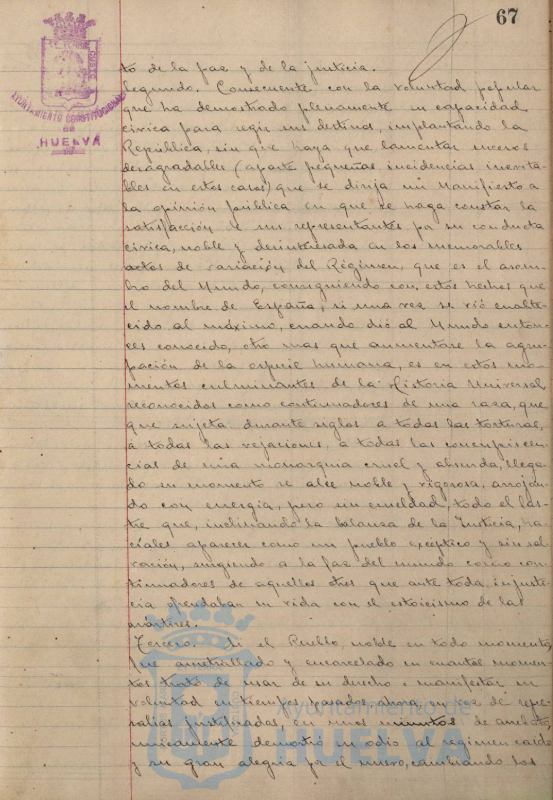 67
AYUNTAMIENTO CONSTITUCIONAL
DE
HUELVA
to de la paz y de la justicia.
Segundo. Consecuente con la voluntad popular
que ha demostrado plenamente su capacidad
cívica para regir sus destinos, implantando la
República, sin que haya que lamentar sucesos
desagradables (aparte pequeñas incidencias inevita-
bles en estos casos) que se dirija un Manifiesto a
la opinión pública en que se haga constar la
satisfacción de sus representantes, por su conducta
cívica, noble y desinteresada en los memorables
actos de variación del Régimen, que es el asom-
bro del Mundo, consiguiendo con estos hechos que
el nombre de España, si una vez se vió enalte-
cido al máximo, cuando dió al Mundo enton-
ces conocido, otro mas que aumentase la agru-
pación de la especie humana, es en estos mo-
mentos culminantes de la Historia Universal,
reconocidos como continuadores de una raza, que
que sujeta durante siglos a todas las torturas,
á todas las vejaciones, a todas las concupiscen-
cias de una monarquia cruel y absurda, llega-
do su momento se alce noble y vigorosa, arrojan-
do con energía, pero sin crueldad, todo el las-
tre que, inclinando la balanza de la Justicia, ha-
ciales aparecer como un pueblo excéptico y sin sal-
vación, surgiendo a la faz del mundo como con-
tinuadores de aquellos otros que ante toda injusti-
cia ofrendaban su vida con el estoicismo de los
mártires.
Tercero. Si el Pueblo, noble en todo momento,
fue ametrallado y encarcelado en cuantos momen-
tos trató de usar de su derecho e manifestar su
voluntad en tiempos pasados, ahora, en vez de repre-
salias justificadas, en unos minutos de arrebato,
unicamente demostró su odio al regimen caido
y su gran alegria por el nuevo, cambiando los
Ayuntamiento de
HUELVA